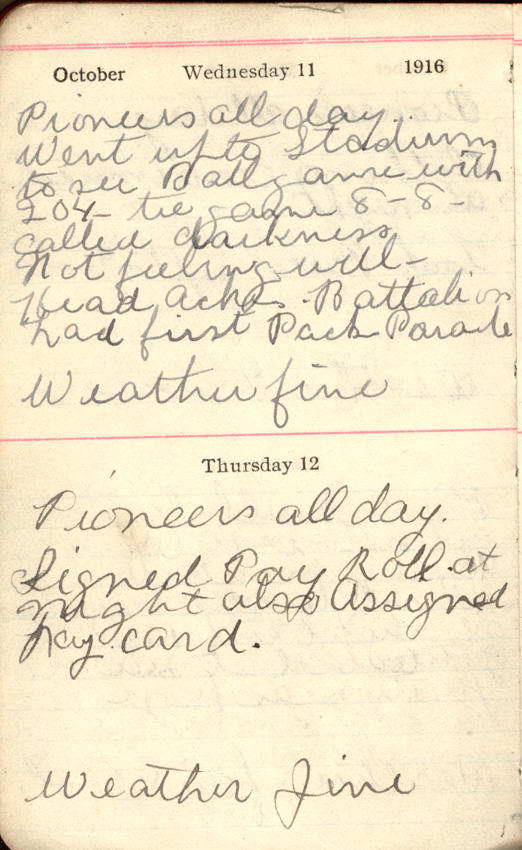 October Wednesday 11 1916
Pioneers all day.
Went up to Stadium
to see Ball game with
204 - tie game 8-8-
called darkness
Not feeling well -
Head Ache. Battalion
had first Pack Parade
Weather fine
Thursday 12
Pioneers all day.
Signed Pay Roll at
night also assigned
Pay card.
Weather fine